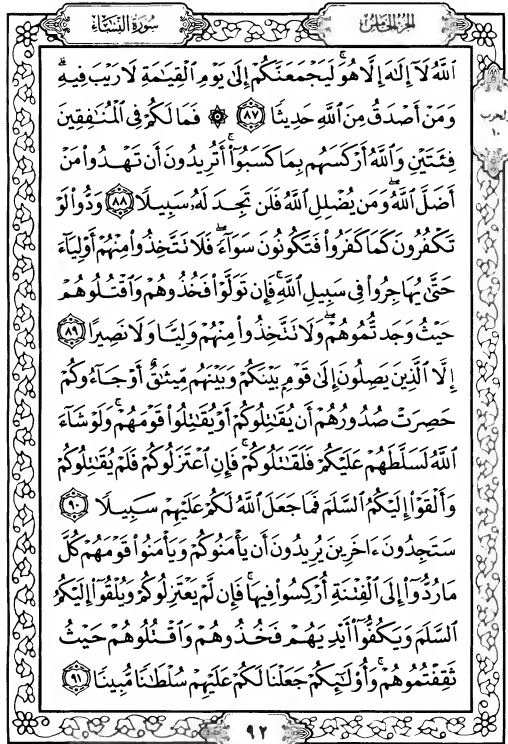 سُورَةُ النِّسَاء
الجزء الخامس
اللَّهُ لَا إِلَٰهَ إِلَّا هُوَ ۚ لَيَجْمَعَنَّكُمْ إِلَىٰ يَوْمِ الْقِيَامَةِ لَا رَيْبَ فِيهِ ۗ
وَمَنْ أَصْدَقُ مِنَ اللَّهِ حَدِيثًا ٨٧ ۞ فَمَا لَكُمْ فِي الْمُنَافِقِينَ
فِئَتَيْنِ وَاللَّهُ أَرْكَسَهُم بِمَا كَسَبُوا ۚ أَتُرِيدُونَ أَن تَهْدُوا مَنْ
أَضَلَّ اللَّهُ ۖ وَمَن يُضْلِلِ اللَّهُ فَلَن تَجِدَ لَهُ سَبِيلًا ٨٨ وَدُّوا لَوْ
تَكْفُرُونَ كَمَا كَفَرُوا فَتَكُونُونَ سَوَاءً ۖ فَلَا تَتَّخِذُوا مِنْهُمْ أَوْلِيَاءَ
حَتَّىٰ يُهَاجِرُوا فِي سَبِيلِ اللَّهِ ۚ فَإِن تَوَلَّوْا فَخُذُوهُمْ وَاقْتُلُوهُمْ
حَيْثُ وَجَدتُّمُوهُمْ ۖ وَلَا تَتَّخِذُوا مِنْهُمْ وَلِيًّا وَلَا نَصِيرًا ٨٩
إِلَّا الَّذِينَ يَصِلُونَ إِلَىٰ قَوْمٍ بَيْنَكُمْ وَبَيْنَهُم مِّيثَاقٌ أَوْ جَاءُوكُمْ
حَصِرَتْ صُدُورُهُمْ أَن يُقَاتِلُوكُمْ أَوْ يُقَاتِلُوا قَوْمَهُمْ ۚ وَلَوْ شَاءَ
اللَّهُ لَسَلَّطَهُمْ عَلَيْكُمْ فَلَقَاتَلُوكُمْ ۚ فَإِنِ اعْتَزَلُوكُمْ فَلَمْ يُقَاتِلُوكُمْ
وَأَلْقَوْا إِلَيْكُمُ السَّلَمَ فَمَا جَعَلَ اللَّهُ لَكُمْ عَلَيْهِمْ سَبِيلًا ٩٠
سَتَجِدُونَ ءَاخَرِينَ يُرِيدُونَ أَن يَأْمَنُوكُمْ وَيَأْمَنُوا قَوْمَهُمْ كُلَّ
مَا رُدُّوا إِلَى الْفِتْنَةِ أُرْكِسُوا فِيهَا ۚ فَإِن لَّمْ يَعْتَزِلُوكُمْ وَيُلْقُوا إِلَيْكُمُ
السَّلَمَ وَيَكُفُّوا أَيْدِيَهُمْ فَخُذُوهُمْ وَاقْتُلُوهُمْ حَيْثُ
ثَقِفْتُمُوهُمْ ۚ وَأُولَٰئِكُمْ جَعَلْنَا لَكُمْ عَلَيْهِمْ سُلْطَانًا مُّبِينًا ٩١
الحزب
١٠
٩٢